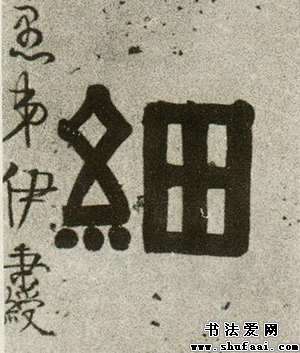 細
愚弟伊秉綬
书法爱网
www.shufaai.com